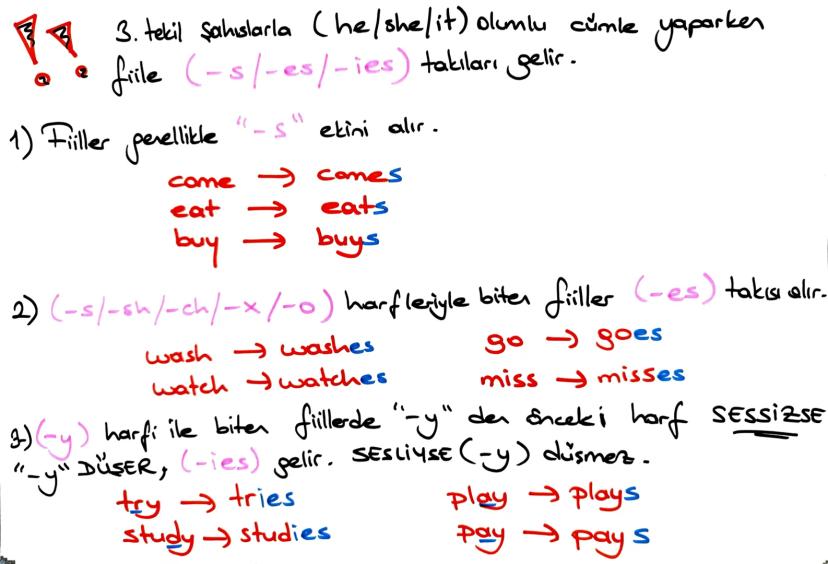 !! 3. tekil şahıslarla (he/she/it) olumlu cümle yaparken
fiile (-s/-es/-ies) takıları gelir.
1) Fiiller genellikle "-s" ekini alır.
come → comes
eat → eats
buy → buys
2) (-s/-sh/-ch/-x/-o) harfleriyle biten fiiller (-es) takısı alır.
wash → washes go → goes
watch → watches miss → misses
3) (-y) harfi ile biten fiillerde "-y" den önceki harf SESSİZSE
"-y" DÜŞER, (-ies) gelir. SESLİYSE (-y) düşmez.
try → tries play → plays
study → studies pay → pays